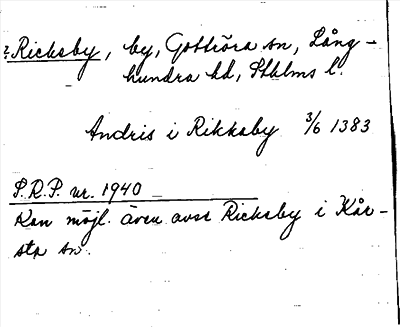 ? Ricksby, by, Gottröra sn, Lång-
hundra hd, Sthlms l.
Andris i Rikkaby 3/6 1383
S.R.P. nr. 1940
Kan möjl. även avse Ricksby i Kår-
sta sn.